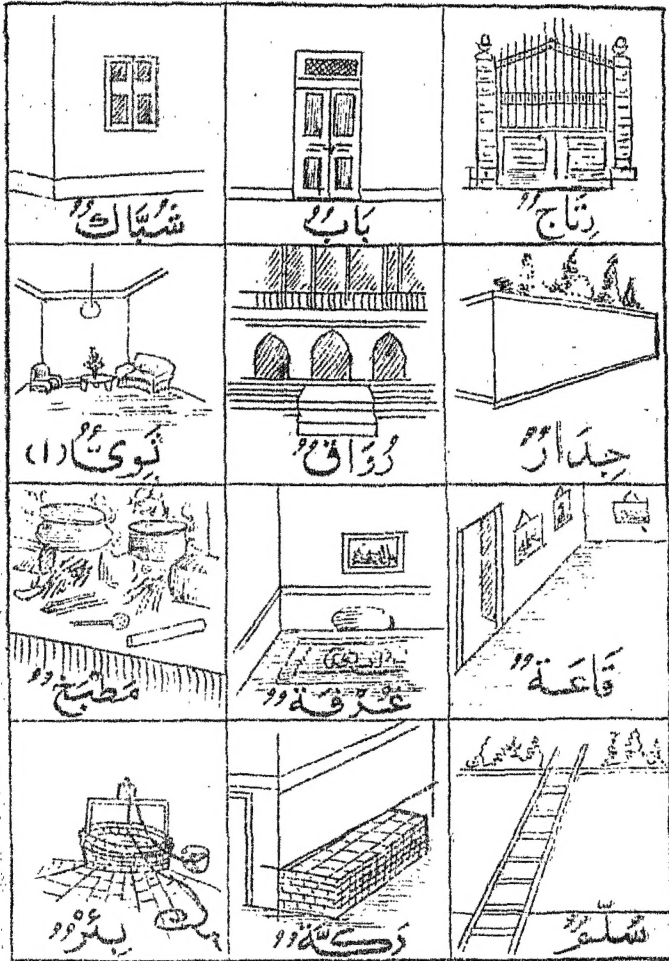 رِتَاجٌ
بَابٌ
شُبَّاكٌ
جِدَارٌ
رُوَاقٌ
ثَوِىٌّ (١)
قَاعَةٌ
غُرْفَةٌ
مَطْبَخٌ
سُلَّمٌ
دَكَّةٌ
بِئْرٌ